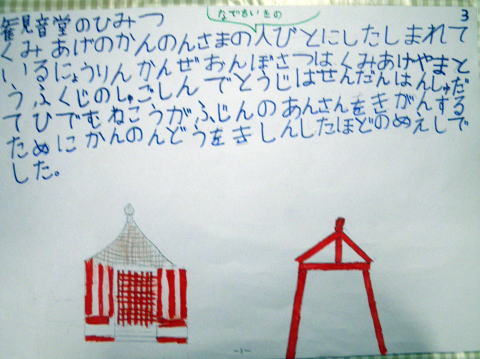 3
観音堂のひみつ
くみあげのかんのんさまの人びとにしたしまれて
いるにょうりんかんぜおんぼさつはくみあげやまと
うふくじのしゅごしんでとうじはせんだんはんしゅだ
てひでむねこうがふじんのあんさんをきがんする
ためにかんのんどうをきしんしたほどのぬえしで
した。